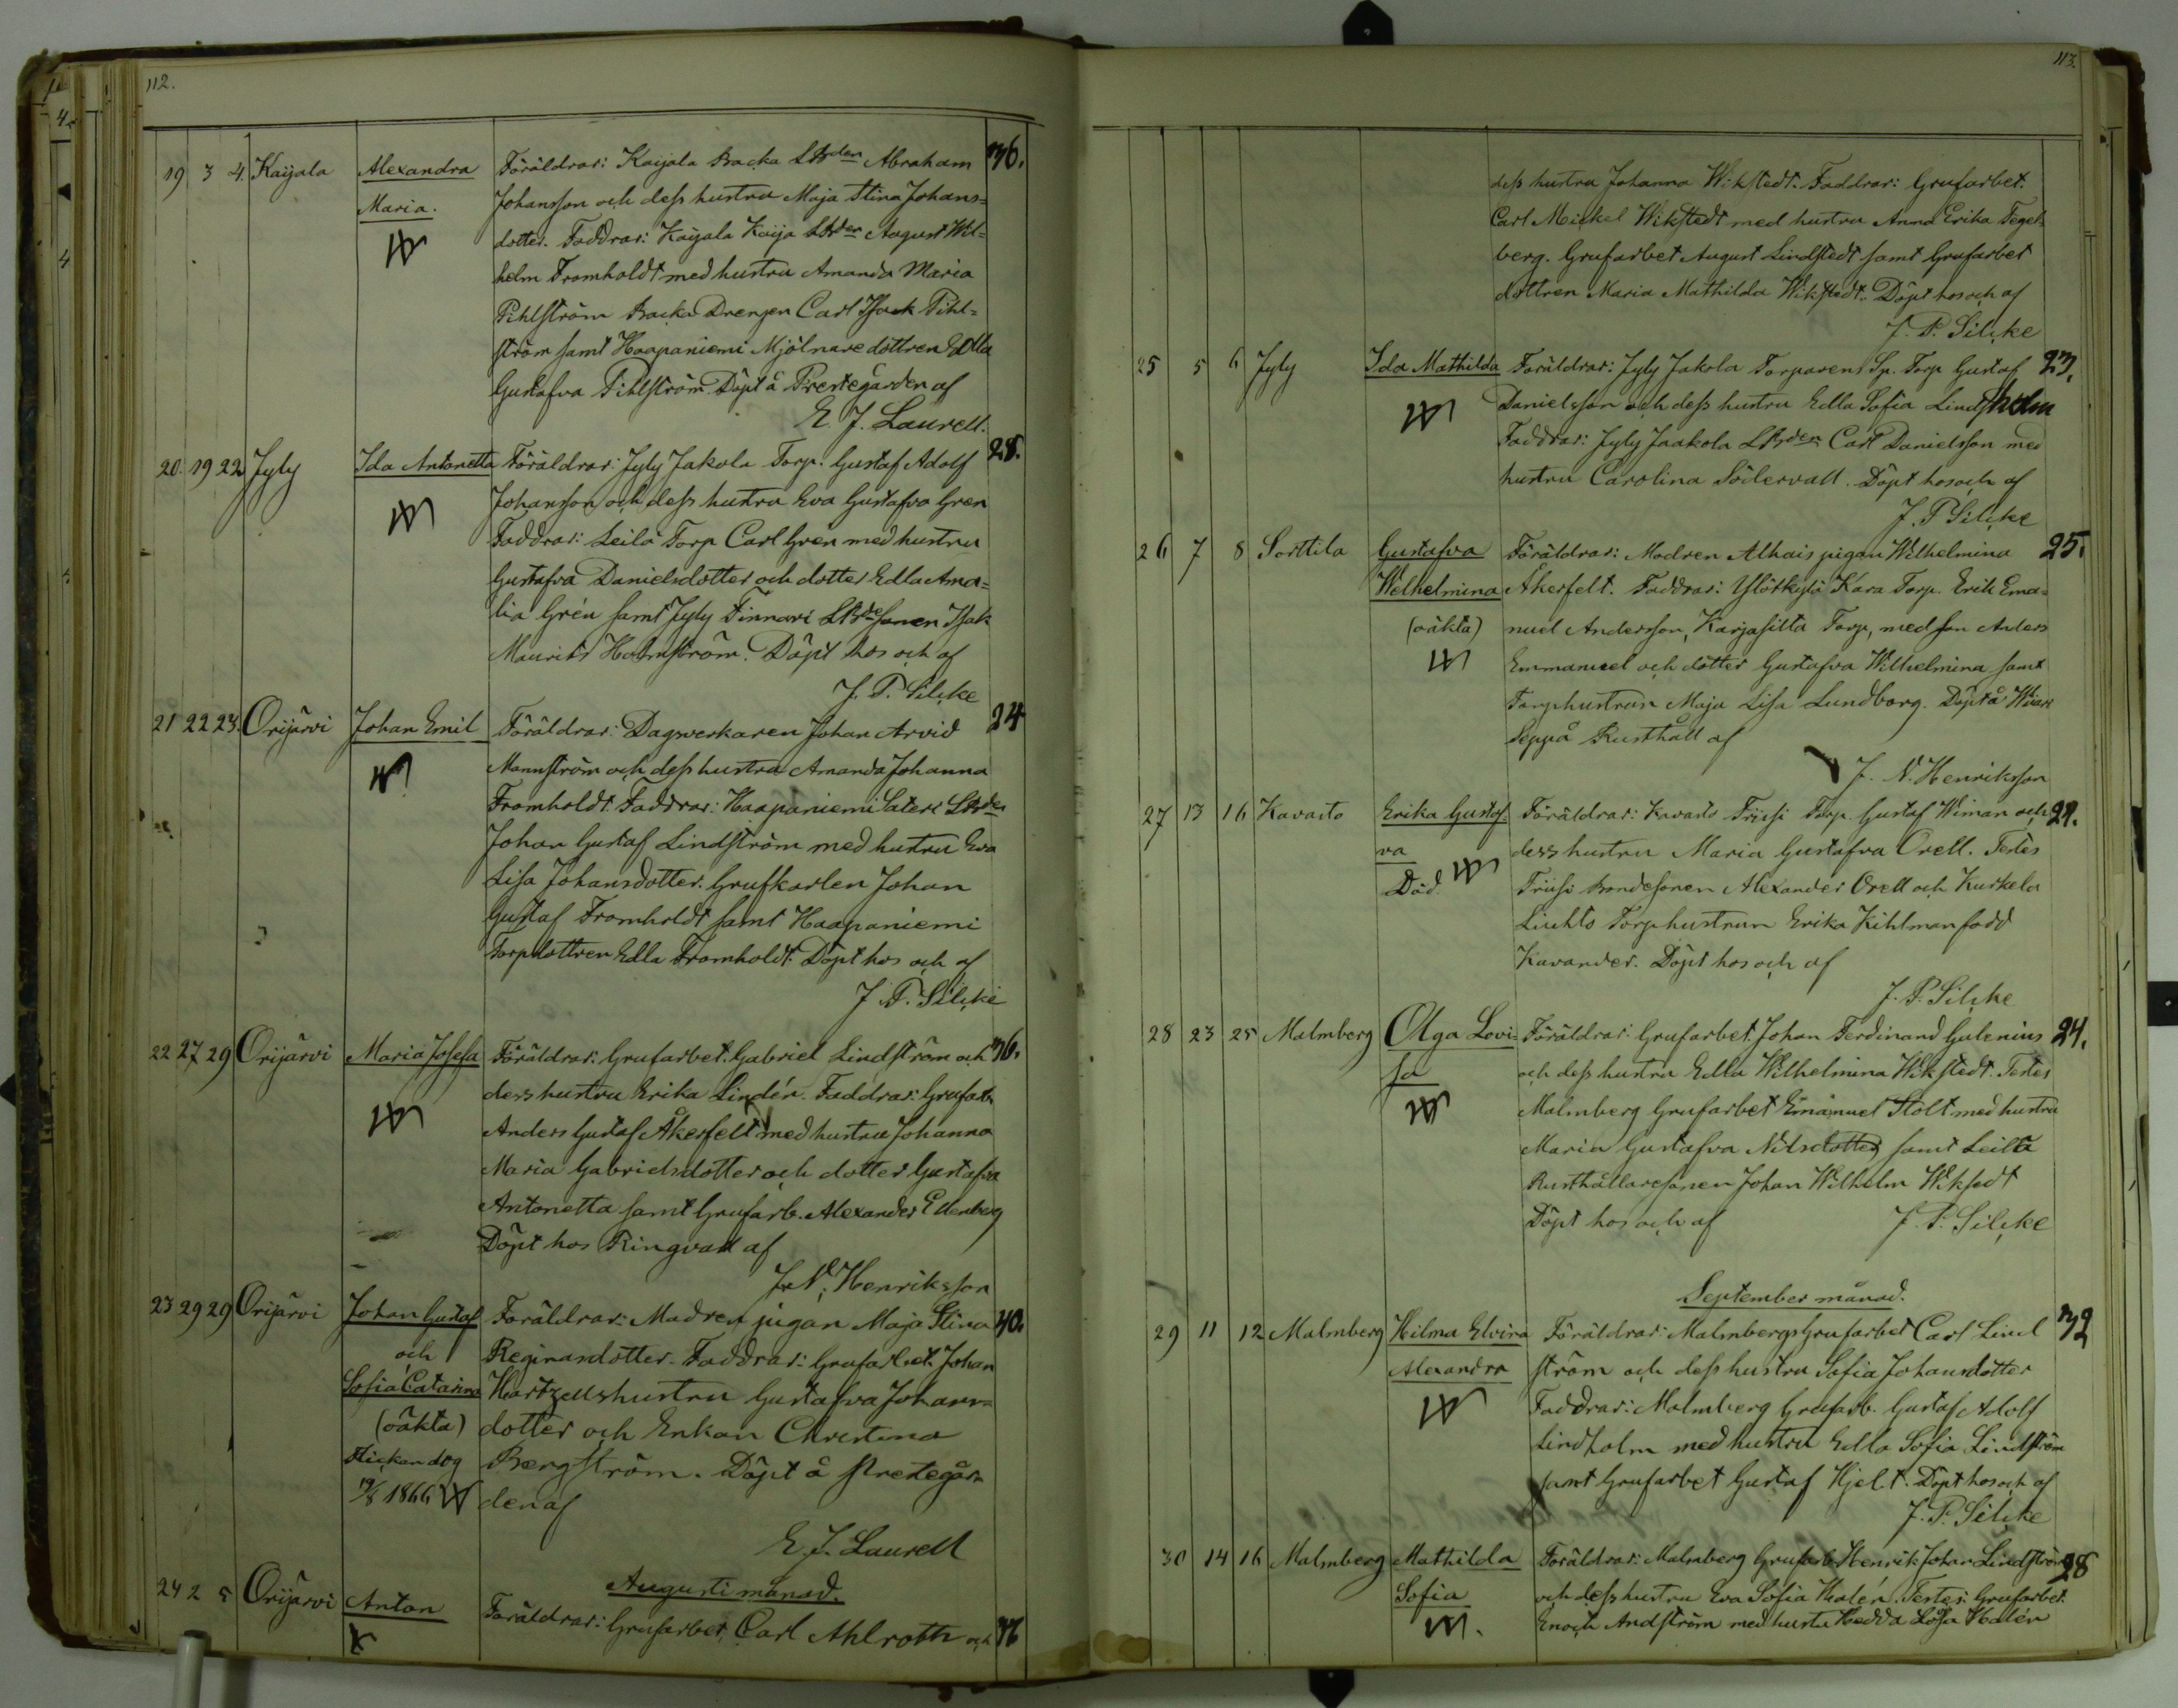 112.
19 3 4. Kaijala Alexandra Föräldrar: Kaijala Backa LBden Abraham 36.
Maria. Johansson och dess hustru Maja Stina Johans=
dotter. Faddrar: Kaijala Kaija LBden August Wil=
helm Fromholdt med hustru Amanda Maria
Pihlström Backa Drengen Carl Isack Pihl=
ström samt Haapaniemi Mjölnaredottren Edla
Gustafva Pihlström Döpt å Prestegården af
E. J. Laurell.
20. 19 22 Jyly Ida Antonetta Föräldrar: Jyly Jakola Torp. Gustaf Adolf 28.
Johansson och dess hustru Eva Gustafva Gren
Faddrar: Leilä Torp Carl Gren med hustru
Gustafva Danielsdotter och dotter Edla Ama=
lia Grén samt Jyly Finnari LBdesonen Isak
Maurits Holmström. Döpt hos och af
J. P. Silcke
21 22 23. Orijärvi Johan Emil Föräldrar: Dagsverkaren Johan Arvid 24
Mannström och dess hustru Amanda Johanna
Fromholdt. Faddrar: Haapaniemi Sateri LBden
Johan Gustaf Lindström med hustru Eva
Lisa Johansdotter. Grufkarlen Johan
Gustaf Fromholdt samt Haapaniemi
Torpdottren Edla Fromholdt. Döpt hos och af
J. P. Silcke
22 27 29 Orijärvi Maria Josefa Föräldrar: Grufarbet. Gabriel Lindström och 36.
dess hustru Erika Lindén. Faddrar: Grufarb.
Anders Gustaf Åkerfelt med hustru Johanna
Maria Gabrielsdotter och dotter Gustafva
Antonetta samt Grufarb. Alexander Ellenberg
Döpt hos Ringvall af
J. N. Henriksson
23 29 29 Orijärvi Johan Gustaf Föräldrar: Modren pigan Maja Stina 40.
och Reginasdotter. Faddrar: Grufarbet. Johan
Sofia Catarina Hartzells hustru Gustafva Johans=
(oäkta) dotter och Enkan Christina
Flickan dog Bergström. Döpt å Prestegår=
19/8 1866 den af
E. J. Laurell
Augusti månad.
24 2 5 Orijärvi Anton Föräldrar: Grufarbet. Carl Ahlroth och 36
113.
dess hustru Johanna Wikstedt. Faddrar: Grufarbet.
Carl Mickel Wikstedt med hustru Anna Erika Tegel=
berg. Grufarbet August Lindstedt samt Grufarbet
dottren Maria Mathilda Wikstedt. Döpt hos och af
J. P. Silcke
25 5 6 Jyly Ida Mathilda Föräldrar: Jyly Jakola Torparens Sp. Torp Gustaf 23.
Danielsson och dess hustru Edla Sofia Lindholm
Faddrar: Jyly Jaakola LBden Carl Danielsson med
hustru Carolina Södervall. Döpt hos och af
J. P. Silcke
26 7 8 Sorttila Gustafva Föräldrar: Modren Alhais pigan Wilhelmina 25.
Wilhelmina Åkerfelt. Faddrar: Ylötkylä Kara Torp. Erik Ema=
(oäkta) nuel Andersson, Karjasilta Torp, med son Anders
Emmanuel och dotter Gustafva Wilhelmina samt
Torphustrun Maja Lisa Lundborg. Döpt å Wiiari
Seppä Rusthåll af
J. N. Henriksson
27 13 16 Kavasto Erika Gustaf- Föräldrar: Kavasto Friisi Torp. Gustaf Wiman och 29.
va dess hustru Maria Gustafva Orell. Testes
Död. Friisi Bondesonen Alexander Orell och Kurkela
Liuhto Torphustrun Erika Kihlman född
Kavander. Döpt hos och af
J. P. Silcke
28 23 25 Malmberg Olga Lovi- Föräldrar: Grufarbet. Johan Ferdinand Galenius 24.
sa och dess hustru Edla Wilhelmina Wikstedt. Testes
Malmberg Grufarbet Emanuel Stolt med hustru
Maria Gustafva Nilsdotter samt Leilä
Rusthållaresonen Johan Wilhelm Wikstedt
Döpt hos och af J. P. Silcke
September månad.
29 11 12 Malmberg Hilma Elvira Föräldrar: Malmbergs Grufarbet Carl Lind 32
Alexandra ström och dess hustru Sofia Johansdotter
Faddrar: Malmberg Grufarb. Gustaf Adolf
Lindholm med hustru Edla Sofia Lindström
samt Grufarbet Gustaf Hjelt. Döpt hos och af
J. P. Silcke
30 14 16 Malmberg Mathilda Föräldrar: Malmberg Grufarb. Henrik Johan Lindström 28
Sofia och dess hustru Eva Sofia Halén. Testes: Grufarbet.
Enoch Andström med hustru Hedda Lovisa Halén